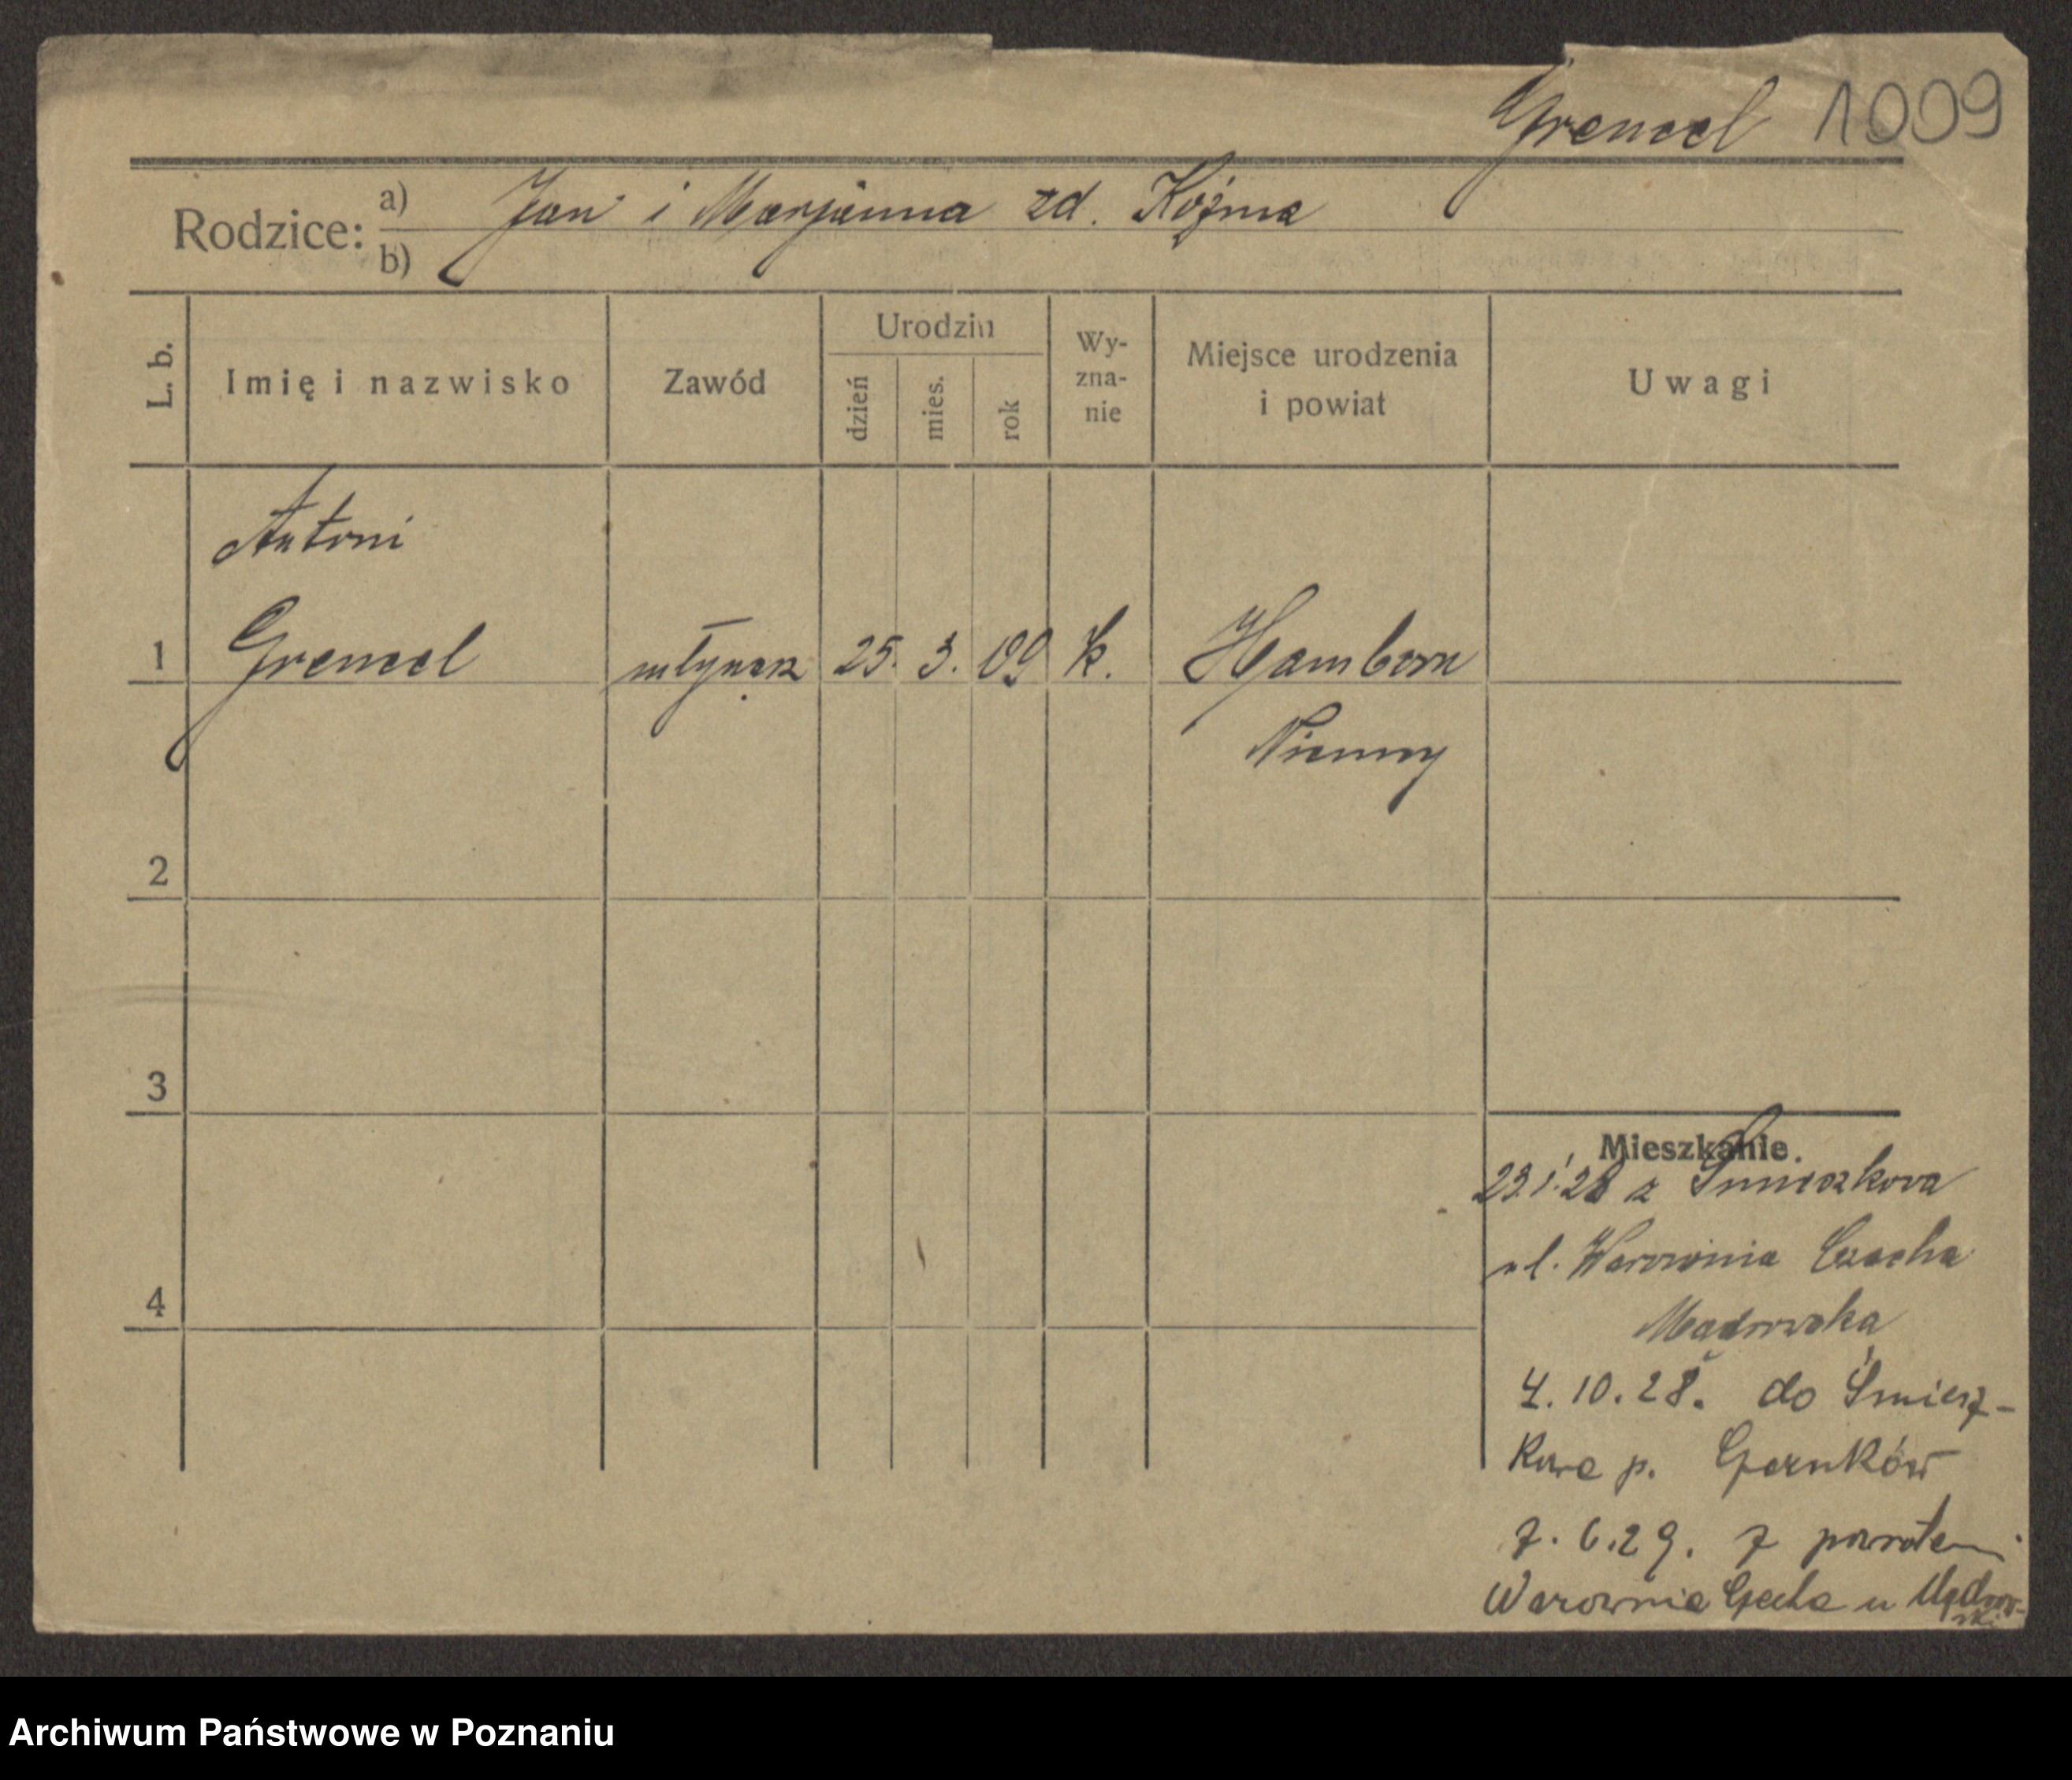 Grencel 1009
Rodzice: a) Jan i Marjanna zd. Koźma
b)
L. b.
Imię i nazwisko
Zawód
Urodzin
dzień
mies.
rok
Wy-
zna-
nie
Miejsce urodzenia
i powiat
Uwagi
Antoni
1 Grencel młynarz 25. 3. 09 k. Hamborn
Niemcy
2
3
4
Mieszkanie.
29.1.28 z Śmieszkowa
ul. Warownia Czecha
4.10.28. do Śmiesz-
kowa p. Czarnków
7.6.29. z powrotem
Warownia Czecha u
Archiwum Państwowe w Poznaniu